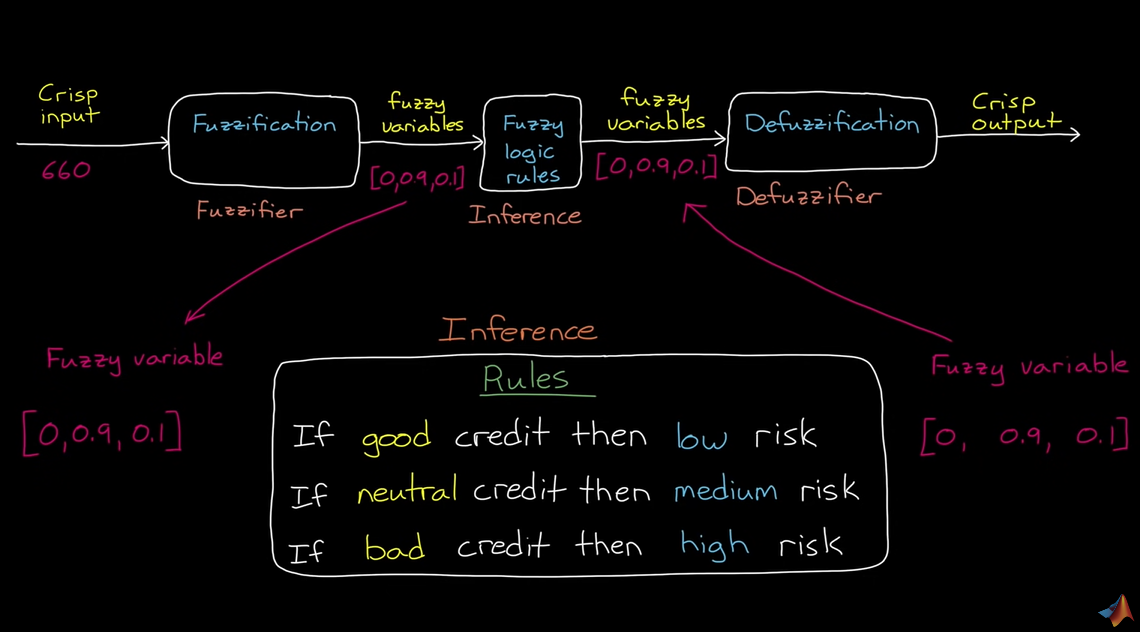 Crisp
input
660
Fuzzification
Fuzzifier
fuzzy
variables
[0,0.9,0.1]
Fuzzy
logic
rules
Inference
fuzzy
variables
[0,0.9,0.1]
Defuzzification
Defuzzifier
Crisp
output
Fuzzy variable
[0,0.9, 0.1]
Inference
Rules
If good credit then low risk
If neutral credit then medium risk
If bad credit then high risk
Fuzzy variable
[0, 0.9, 0.1]